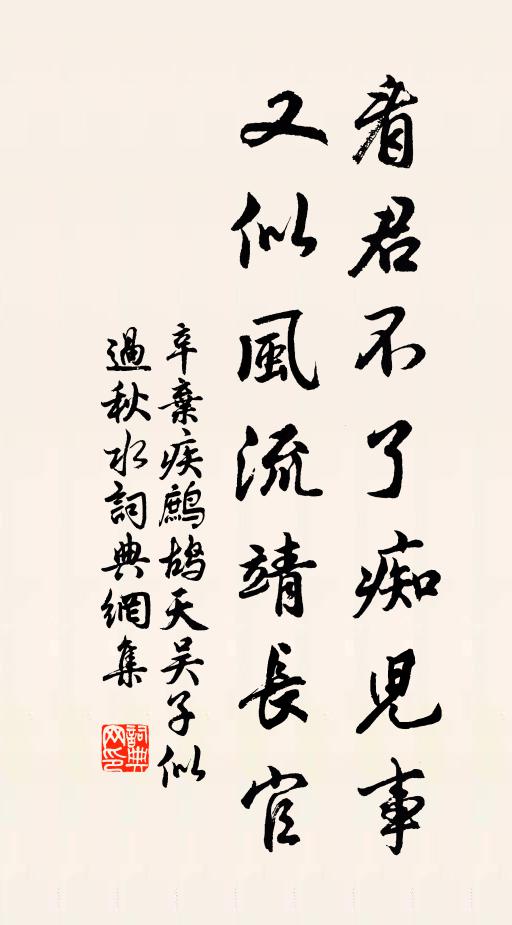 看君不了痴兒事
又似風流靖長官
辛棄疾鷓鴣天吴子似
過秋水詞典網集
詞典
网印